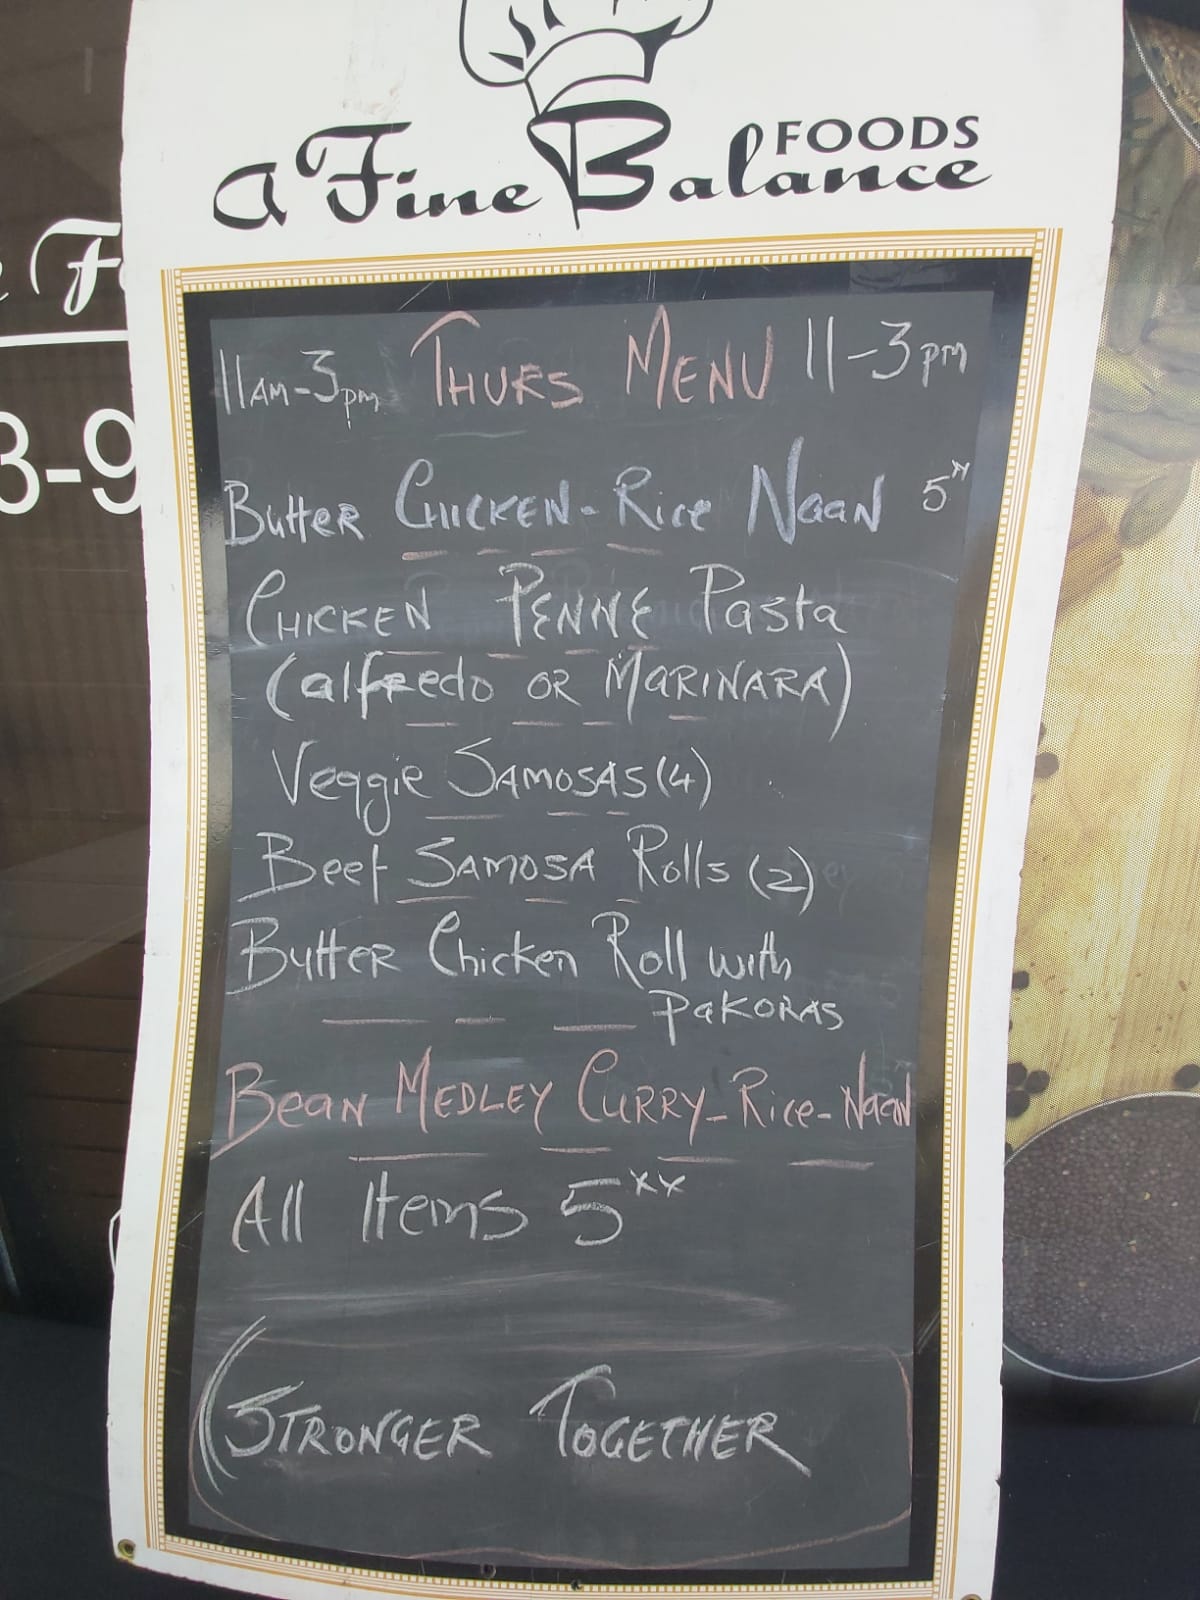 A Fine Balance
FOODS
11AM-3pm THURS MENU 11-3pm
Butter CHICKEN-Rice Naan 5
CHICKEN PENNE Pasta
(alfredo OR MARINARA)
Veggie SAMOSAS (4)
Beef SAMOSA Rolls (2)
Butter Chicken Roll with
PaKORAS
Bean MEDLEY CURRY-Rice-Naan
All Items 5xx
(STRONGER TOGETHER
3-9